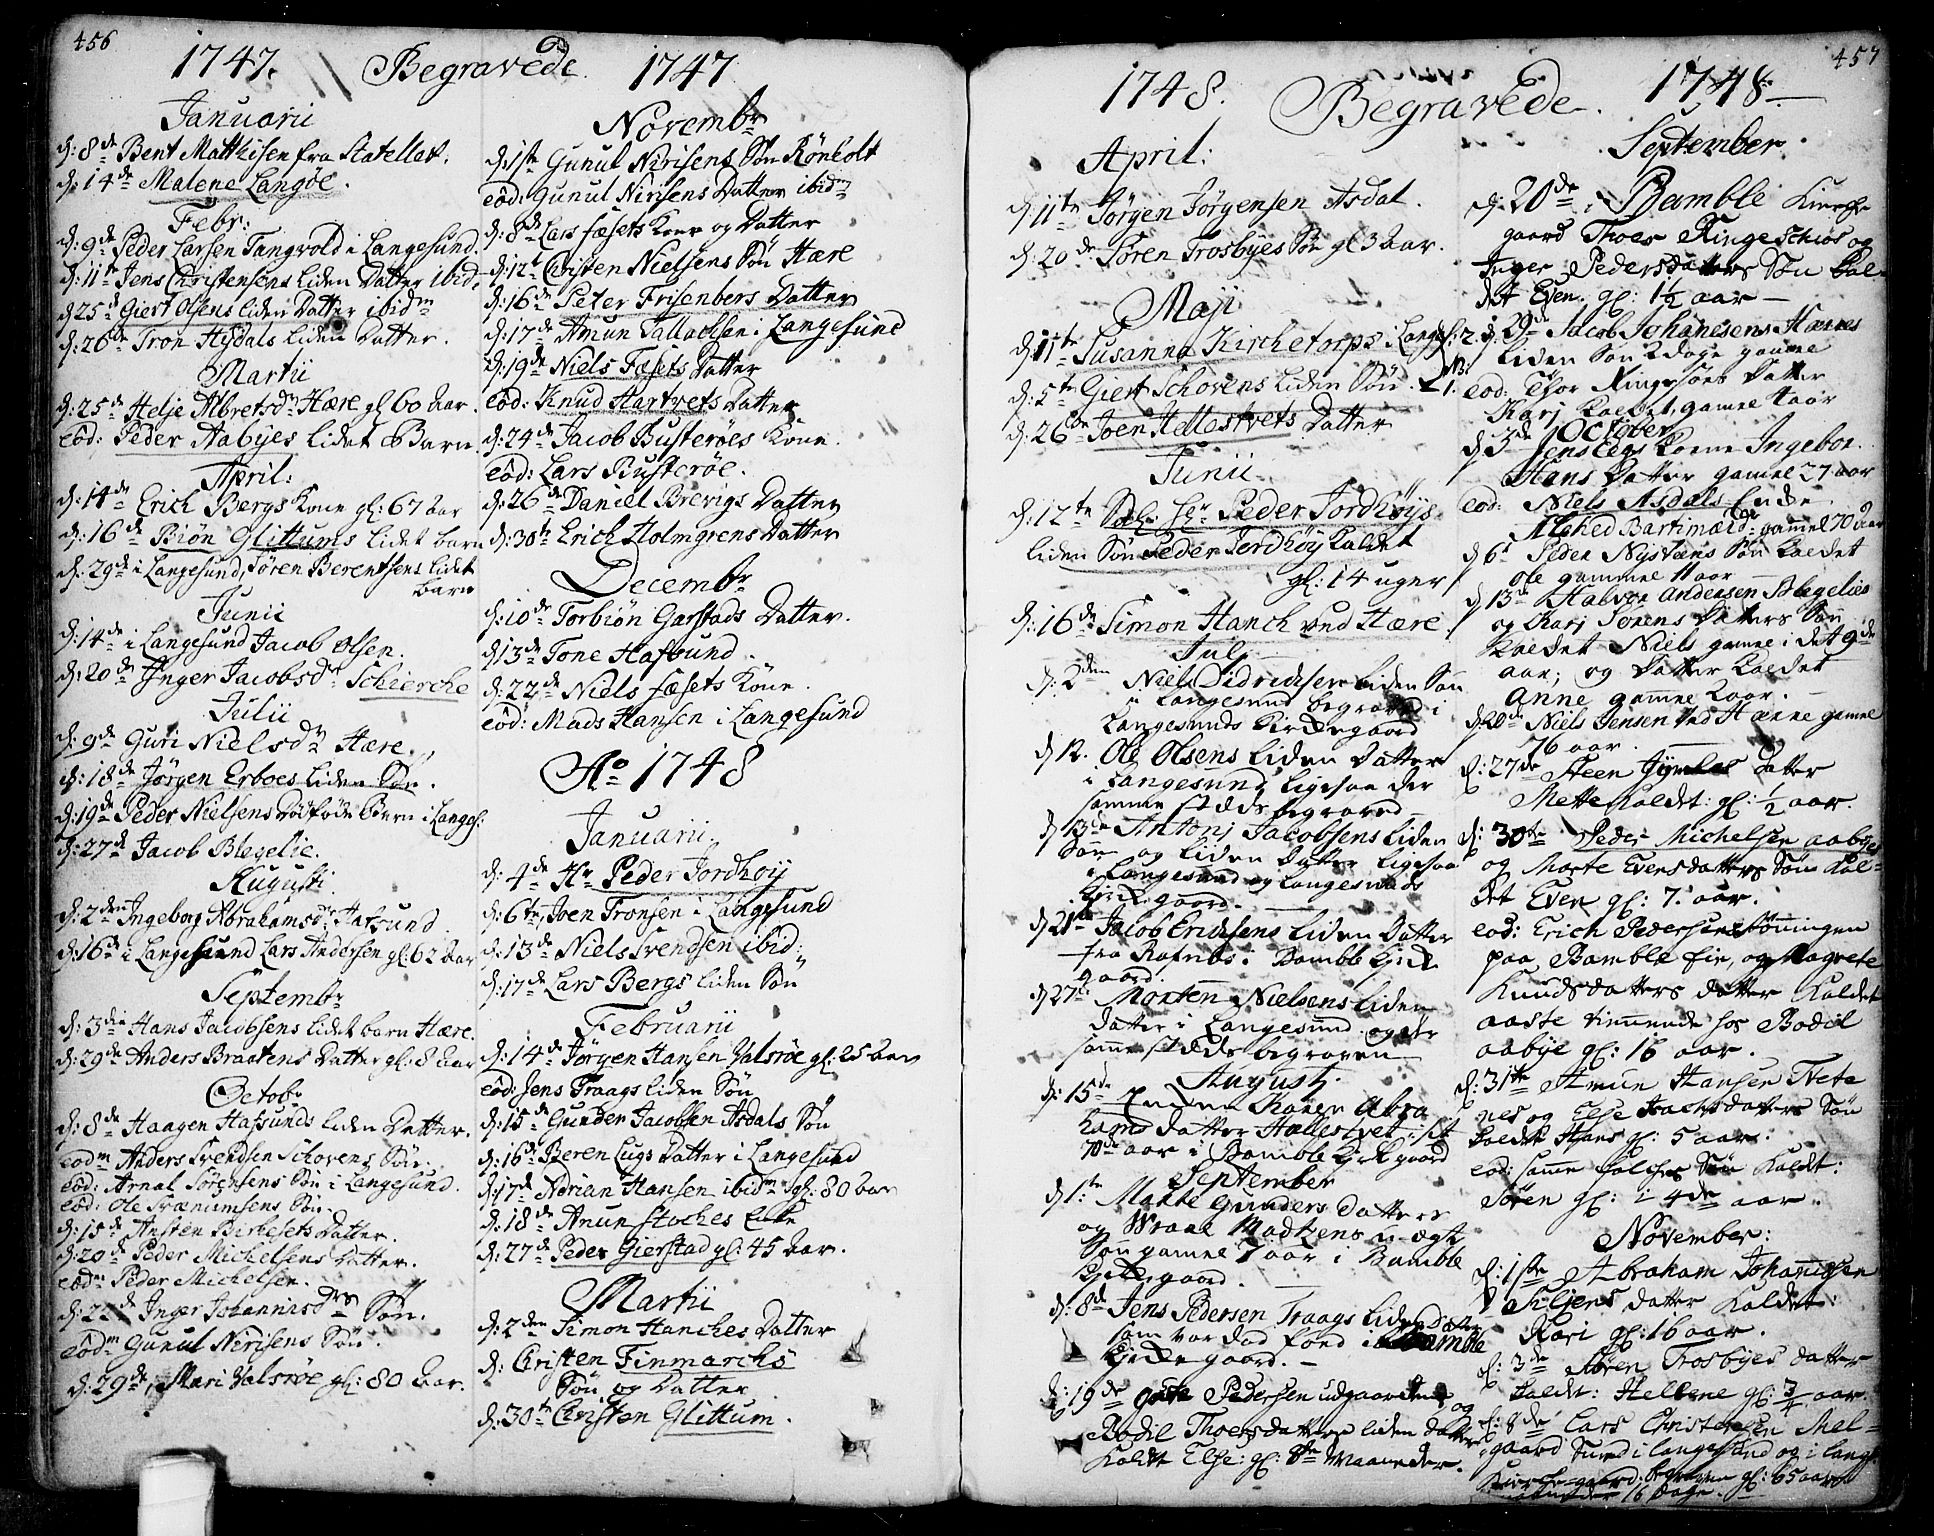 456
1747. Begravede. 1747
Januarii
d: 8de Bent Matthisen fra Statellet.
d: 14de Malene Langøe.
Febr:
d: 9de Peder Larsen Tangvold i Langesund.
d: 11te Jens Christensens liden Datter ibid.
d 25de Giert Olsens liden Datter ibidm
d: 26de Tron Hydals liden Datter.
Martii
d: 25de Helje Albretsdr Hære gl 60 Aar.
eôd: Peder Aabyes lidet Barn
April:
d: 14de Erich Bergs Kone gl: 67 aar
d: 16de Biôn Glittums lidet barn
d: 29de i Langesund, Sören Berentsens lidet
barn
Junii
d: 14de i Langesund Jacob Olsen.
d: 20de Inger Jacobsdr Schierche
Julii
d: 9de Guri Nielsdr Hære.
d: 18de Jørgen Erboes liden Søn.
d: 19de Peder Nielsens Dödföde Barn i Langes:
d: 27de Jacob Blegelie.
Augusti
d: 2den Ingeborg Abrahamsdr Hafsund.
d: 16de i Langesund Lars Andersen gl: 62 aar
Septembr
d: 3die Hans Jacobsens lidet barn Hære.
d: 29de Anders Braatens Datter gl: 8 aar
Octobr
d: 8de Haagen Hafsunds liden Datter.
eodm Anders Svendsen Schovens Søn.
eôd: Arnal Sörensens Sön i Langesund.
eôd: Ole Svænumsens Sön.
d: 15de Ansten Birkesets Datter.
d: 20de Peder Michelsens Datter.
eôdm Peder Michelsen.
d: 22de Inger Johannisdrs Søn.
eôdm Gunul Nirisens Søn.
d: 29de Mari Valsröe gl: 80 Aar.
Novembr
d: 1ste Gunul Nirisens Søn Rönholt
eôd: Gunul Nirisens Datter ibidm
d: 8de Lars Fæsets Kone og Datter
d: 12te Christen Nielsens Søn Hære
d: 16de Peter Frisenbers Datter
d: 17de Amun Tallachsen i Langesund
d: 19de Niels Fæsets Datter
eôd: Knud Hartvets Datter
d: 24de Jacob Busterøes Kone.
eôd: Lars Busterøe.
d: 26de Daniel Brevigs Datter
d: 30te Erich Holmgrens Datter
Decembr
d: 10de Torbiön Garstads Datter.
d 13de Tone Hafsund.
d: 22de Niels Fæsets Kone.
eôd: Mads Hansen i Langesund
Ao 1748
Januarii
d: 4de Hr Peder Jordhøy
d: 6te Joen Tronsen i Langesund
d: 13de Niels Svendsen ibid:
d: 17de Lars Bergs liden Søn
Februarii
d: 14de Jørgen Hansen Valsröe gl: 25 aar
eôd: Jens Traags liden Søn
d: 15de Gunder Jacobsen Asdals Søn
d: 16de Beren Lugs Datter i Langesund
d: 17de Adrian Hansen ibidm gl: 80 aar
d: 18de Anun Stoches Enke
d: 27de Peder Gierstad gl: 45 Aar.
Martii
d: 2den Simon Hanches Datter
d: Christen Finmarchs
Søn og Datter
d: 30te Christen Glittum.
457
1748. Begravede. 1748.
April:
d: 11te Jørgen Jørgensen Asdal.
d: 20de Sören Trosbyes Sön gl 3 Aar.
Maji
d: 11te Susanna Kirchetorps i Langes:
d: 5te Giert Schovens liden Sön.
d: 26de Joen Hellestvets Datter
Junii
d: 12te Sal: Hr Peder Jordhöys
liden Søn Peder Jordhöy kaldet
gl: 14 uger
d: 16de Simon Hanch ved Hære
Julj
d: 2den Niels Didrichsens liden Søn
i Langesund begraved i
Langesunds kirkegaard
d 12. Ole Olsens liden Datter
i Langesund ligesaa der
samme steds begraved
d 13de Antonj Jacobsens liden
Søn og liden Datter ligesaa
i Langesund og Langesunds
Kirkegaard.
d 21de Jacob Ericksens liden Datter
fra Rafnes i Bamble Kirke
gaard.
d 27de Morten Nielsens liden
datter i Langesund og der
samme steds begraven
Augustj.
d: 15de Enken Karen Abra
hams datter Hallestvet i sit
70de aar i Bamble Kirkgaard
September
d 1te Marte Gunders datters
og Wraal Madsens u-ægte
Søn gamel 7 aar i Bamble
Kirkegaard.
d: 8de Jens Pedersen Traags liden Datter
som var død fød i Bamble
Kirke gaard.
d: 19de Pedersen udgaarden og
Bodil Thoersdatters liden datter
kaldt Else: gl: 8te Maaneder.
September.
d. 20de i Bamble Kirche
gaard Thoes Ringeschios og
Inger Pedersdatters Søn kal-
det Even. gl: 1½ aar
2. d: 29de Jacob Johanesens Hærres
liden Søn 2 dage gamel
NB: 1. eod: Thor Ringsøes datter
Karj kaldet, gamel 4 aar
October
d 3de Jens Eegs Kone Ingebor
Hans Datter gamel 27 aar
eod: Niels Asdals Enke
Alehed Bartimæidr gamel 70 aar
d 6te Peder Nystæns Søn kaldet
Ole gammel 11 aar
d 13de Halvor Andersen Blegelies
og Karj Sørens datters Søn
kaldet Niels gamel i det 9de
aar, og datter kaldet
Anne gamel 2 aar.
d: 20de Niels Jensen ved Hærre gamel
76 aar.
d: 27de Steen datter
Mette kaldet: gl: ½ aar.
d: 30te Peder Michelsen aabyes
og Marte Evensdatters Søn kal-
det Even gl: 7. aar.
eod: Erich Pedersen Rønningen
paa Bamble eie, og Magrete
Knudsdatters datter kaldet
aaste tienende hos Bodil
aabye gl: 16 aar.
d: 31te Amun Hansen Trete
nes og Else Isachsdatters Søn
kaldet Hans gl: 5 aar:
eod: samme folches Søn kaldt:
Sören gl: i 4de aar.
November:
d: 1ste Abraham Johannisen
Siljens datter kaldet:
Kari gl: 16 aar.
d: 3de Sören Trosbyes datter
kaldt: Hellene gl: ¾ aar.
d: 8de Lars Christensen Mel-
gaard Sund i langesund og i langs
Kirche-gaard: begraven gl: 65 aar
16 dage.